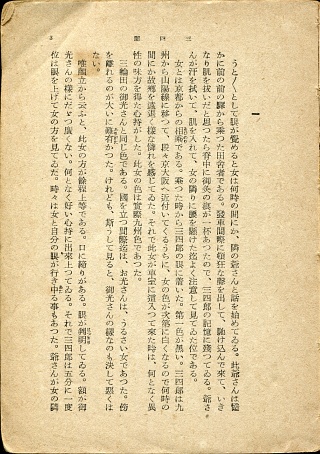 三四郎
3
一
うとうとして眼が覚めると女は何時の間にか、隣の爺さんと話を始めてゐる。此爺さんは慥
かに前の前の駅から乗つた田舎者である。発車間際に頓狂な声を出して、馳け込んで来て、いき
なり肌を抜いだと思つたら脊中に御灸の痕が一杯あつたので、三四郎の記憶に残つてゐる。爺さ
んが汗を拭いて、肌を入れて、女の隣りに腰を懸けた迄よく注意して見てゐた位である。
女とは京都からの相乗である。乗つた時から三四郎の眼に着いた。第一色が黒い。三四郎は九
州から山陽線に移つて、段々京大阪へ近付いてくるうちに、女の色が次第に白くなるので何時の
間にか故郷を遠退く様な憐れを感じてゐた。それで此女が車室に這入つて来た時は、何となく異
性の味方を得た心持がした。此女の色は実際九州色であつた。
三輪田の御光さんと同じ色である。国を立つ間際迄は、お光さんは、うるさい女であつた。傍
を離れるのが大いに難有かつた。けれども、斯うして見ると、御光さんの様なのも決して悪くは
ない。
唯顔立から云ふと、此女の方が余程上等である。口に締りがある。眼が判明してゐる。額が御
光さんの様にだゞつ広くない。何となく好い心持に出来上つてゐる。それで三四郎は五分に一度
位は眼を上げて女の方を見てゐた。時々は女と自分の眼が行き中る事もあつた。爺さんが女の隣